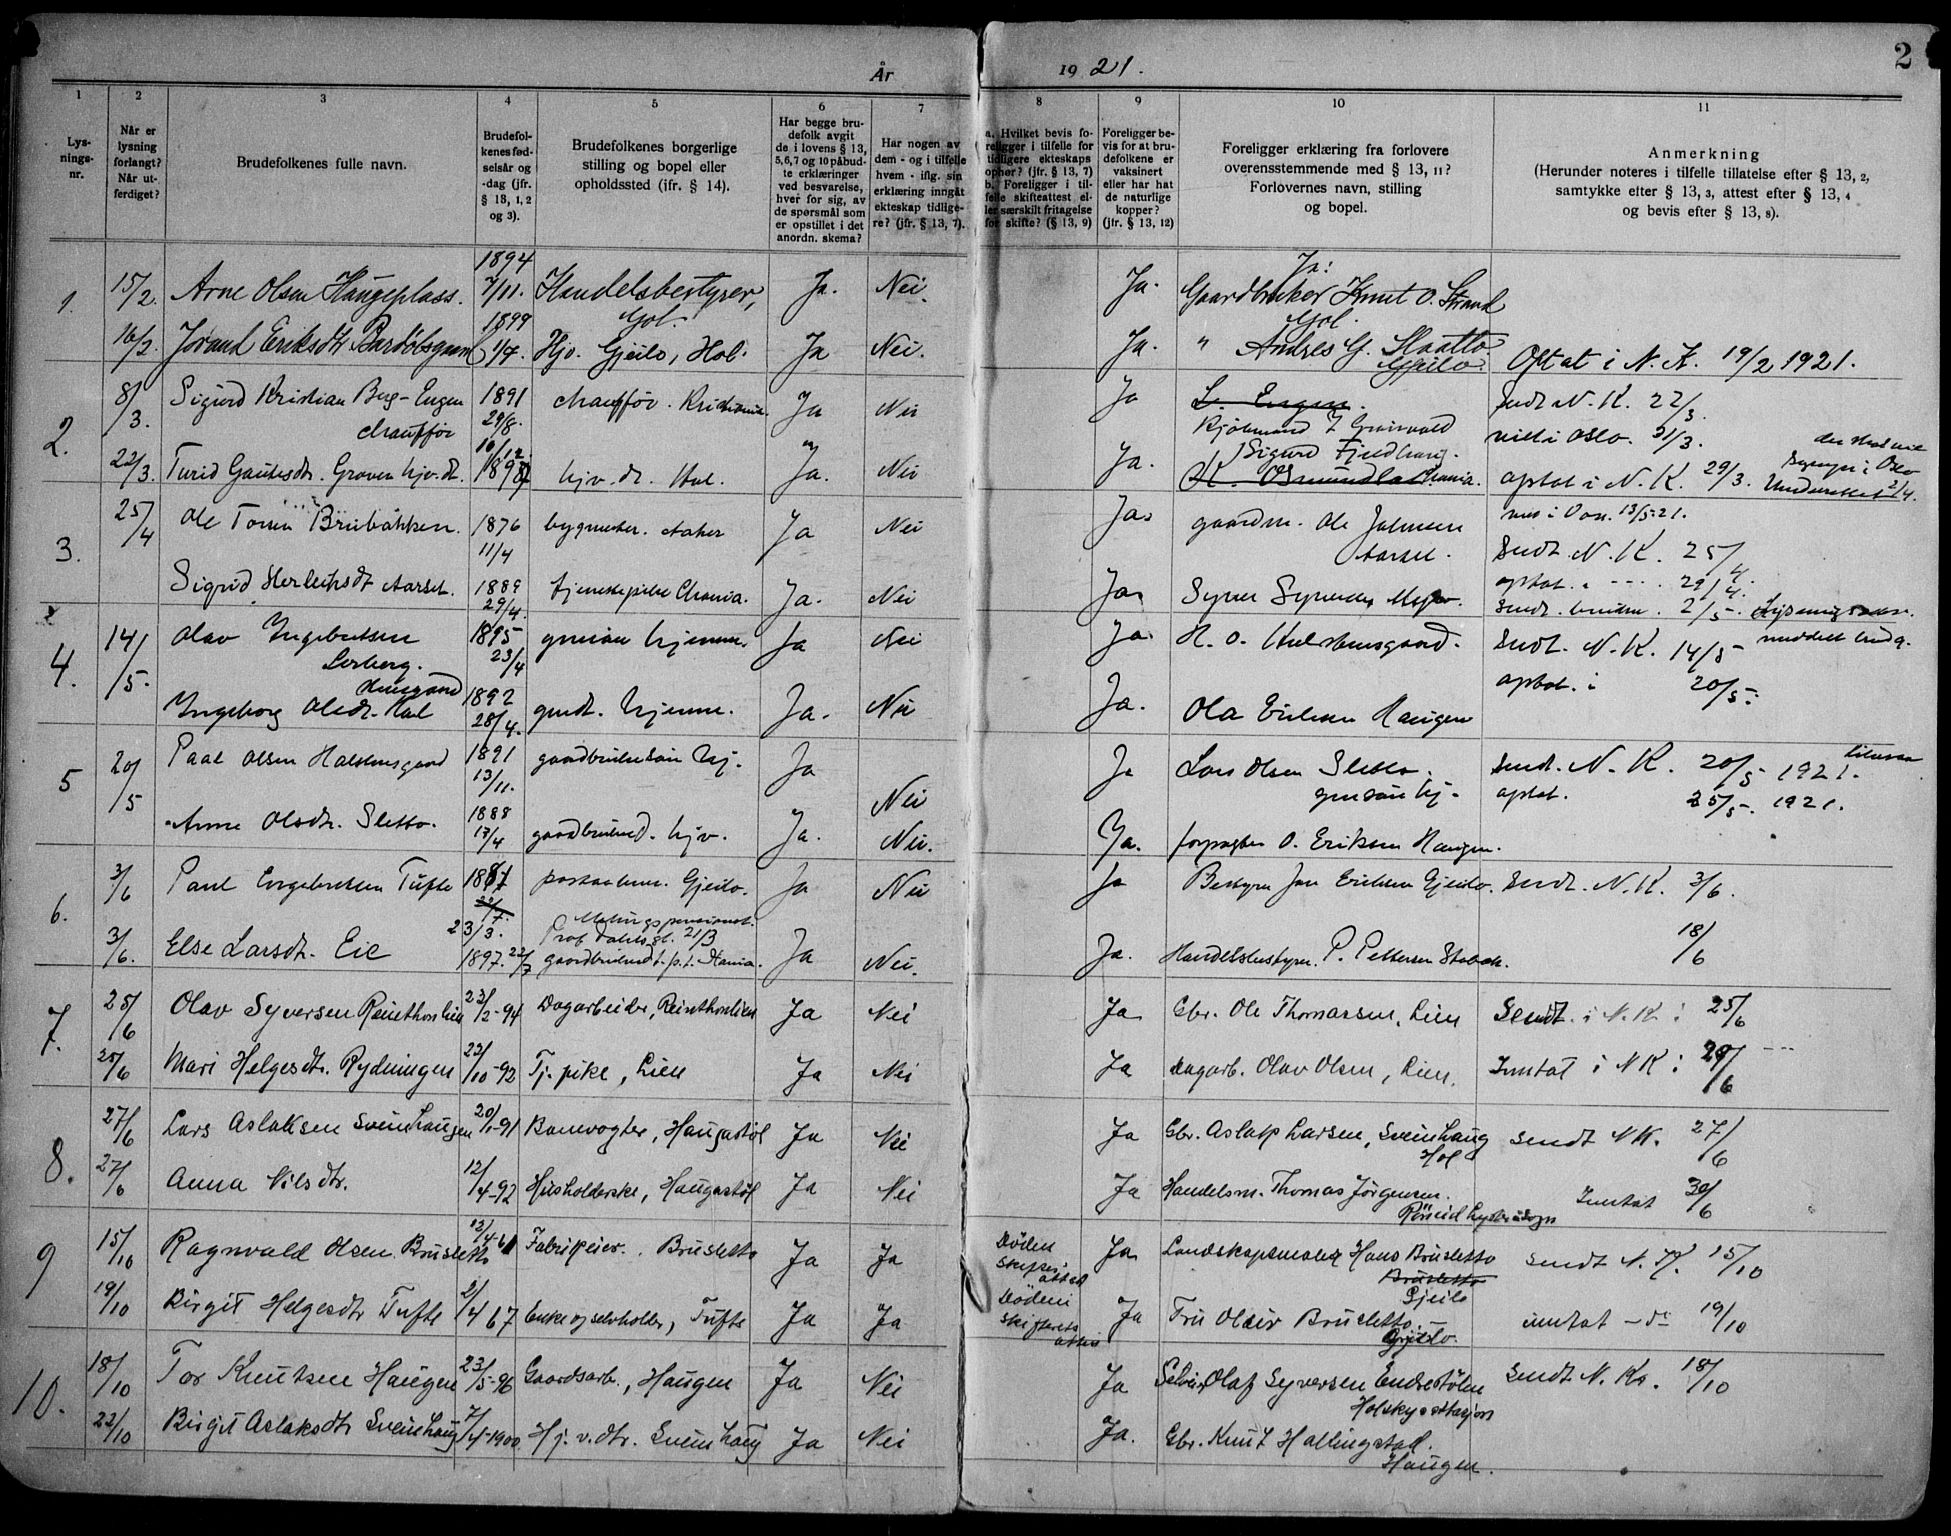 År 1921.
2
1
2
3
4
5
6
7
8
9
10
11
Lys-
nings-
nr.
Når er
lysning
forlangt?
Når ut-
ferdiget?
Brudefolkenes fulle navn.
Brudefol-
kenes fød-
selsår og
-dag (jfr.
§ 13, 1, 2
og 3).
Brudefolkenes borgerlige
stilling og bopel eller
opholdssted (ifr. § 14).
Har begge bru-
defolk avgit
de i lovens § 13,
5,6,7 og 10 påbud-
te erklæringer
ved besvarelse,
hver for sig, av
de spørsmål som
er opstillet i det
anordn. skema?
Har nogen av
dem - og i tilfelle
hvem - iflg. sin
erklæring inngåt
ekteskap tidlige-
re? (jfr. § 13, 7).
a. Hvilket bevis fo-
religger i tilfelle for
tidligere ekteskaps
ophør? (jfr. § 13, 7)
b. Foreligger i til-
felle skifteattest el-
ler særskilt fritagelse
for skifte? (§ 13, 9)
Foreligger be-
vis for at bru-
defolkene er
vaksinert
eller har hat
de naturlige
kopper?
(jfr. § 13, 12)
Foreligger erklæring fra forlovere
overensstemmende med § 13, 11?
Forlovernes navn, stilling
og bopel.
Anmerkning
(Herunder noteres i tilfelle tillatelse efter § 13, 2,
samtykke efter § 13, 3, attest efter § 13, 4
og bevis efter § 13, 8).
1. 15/2. Arne Olsen Haugeplass. 1894 7/11. Handelsbestyrer, Gol. Ja. Nei. Ja. Ja: Gaardbruker Knut O. Strand Gol.
16/2. Jorand Eriksdtr 1899 1/4. Hjv. Gjeilo, Hol. Ja Nei. Ja. " Andres G. Slaatto. Gjeilo. Optat i N. K. 19/2 1921.
2. 8/3. Sigurd Kristian Berg-Engen chauffør 1891 29/8. chauffør. Kristiania. Ja Nei Ja L. Engen. Sendt N. K. 22/3.
viet i Oslo. 31/3.
22/3. Turid Gautesdt. Groven hjv. dt. 10/12 1898 hjv. dt. Hol. Ja. Nei Ja. Sigurd Fjeldberg. optat i N. K. 29/3.
3. 25/4 Ole Brubakken. 1876 11/4 bygmester. Aaker Ja Nei Ja. gaardm. Ole Johnsen Aarset. 13/5-21.
Sendt. N. K. 25/4.
Sigrid Herleiksdt Aarset. 1889 29/4. tjenestepike Chania. Ja. Nei Ja. Syver Syversen optat. " 29/4.
4. 14/5. Olav Ingebretsen 1895 23/4 hjemme. Ja Nei Ja. H. O. Sendt. N. K. 14/5
Ingeborg Olsdt. Hol 1892 28/4. hjemme. Ja. Nei Ja. Ola Eriksen Haugen optat. i 20/5.
5 20/5 Paal Olsen Halstensgaard 1891 13/11. hj. Ja Nei Ja Lars Olsen Sletto. hj. Sendt. N. K. 20/5 1921.
optat. 25/5. 1921.
Anne Olsdt. Sletto. 1888 17/4 hjv. Ja. Nei. Ja. forpagter O. Eriksen Haugen.
6. 3/6 Paul Engebretsen Tufte Gjeilo. Ja Nei Ja Bestyrer Jon Eriksen Gjeilo. Sendt. N. K. 3/6.
3/6. Else Larsdt. Eie 1897. 22/7 Ja Nei. Ja. Handelsbestyrer. P. Pettersen 18/6
7. 25/6 Olav Syversen Reinthonlien 23/2-94 Dagarbeider, Reinthonlien Ja Nei Ja Gbr. Ole Thomassen, Lien Sendt. i N. K. : 25/6
25/6 Mari Helgesdt. Rydningen 22/10-92 Tj. pike, Lien Ja Nei Ja Dagarb. Olav Olsen, Lien. Inntat i N K : 29/6
8. 27/6 Lars Aslaksen Sveinhaugen 20/1-91 Banevogter, Haugastøl Ja Nei Ja Gbr. Aslak Larsen, Sveinhaug Hol sendt N K. 27/6
27/6 Anna Nilsdtr. 12/4-92 Husholderske, Haugastøl Ja Nei Ja Handelsm. Thomas Jörgensen. Inntat 30/6
9 15/10 Ragnvald Olsen Brusletto 12/4-61 Fabrikeier. Brusletto Ja Ja Döden skifteattest Ja Landskapsmaler Hans Brusletto Brusletto Gjeilo sendt N. K. 15/10
19/10 Birgit Helgesdtr Tufte 2/4 67 Enke og selvholder, Tufte Ja Ja Döden skifterets attest Ja Fru Brusletto. Gjeilo. inntat - do 19/10
10. 18/10 Tor Knutsen Haugen 23/5-96 Gaardsarb., Haugen Ja Nei Ja Olaf Syversen Endrestölen Hol skysstasjon sendt N. Kr. 18/10
22/10 Birgit Aslaksdtr Sveinhaug 7/4-1900 Hj. v. dtr. Sveinhaug Ja Nei Ja. Gbr. Knut Hallingstad. Haugen.